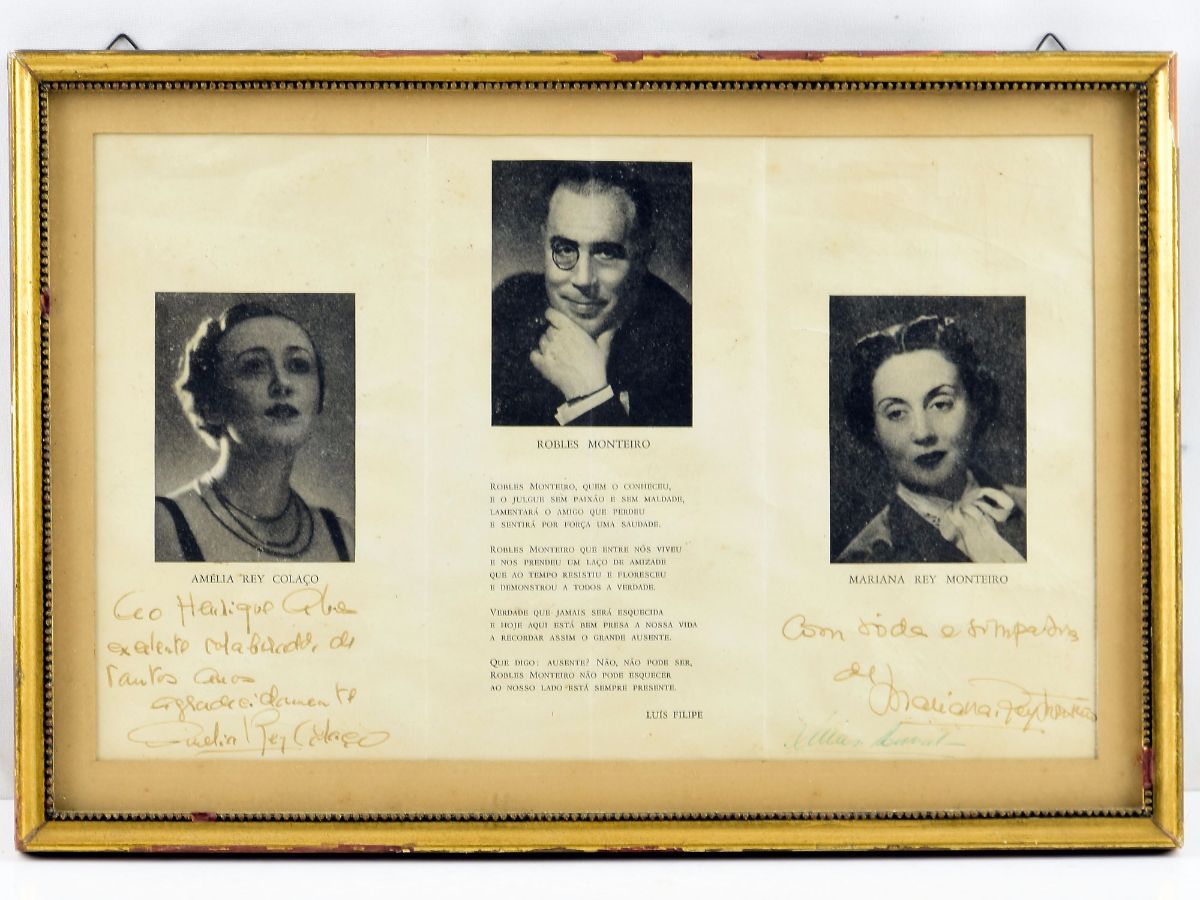 ROBLES MONTEIRO
ROBLES MONTEIRO, QUEM O CONHECEU,
E O JULGUE SEM PAIXÃO E SEM MALDADE,
LAMENTARÁ O AMIGO QUE PERDEU
E SENTIRÁ POR FORÇA UMA SAUDADE.
ROBLES MONTEIRO QUE ENTRE NÓS VIVEU
E NOS PRENDEU UM LAÇO DE AMIZADE
QUE AO TEMPO RESISTIU E FLORESCEU
E DEMONSTROU A TODOS A VERDADE.
VERDADE QUE JAMAIS SERÁ ESQUECIDA
E HOJE AQUI ESTÁ BEM PRESA A NOSSA VIDA
A RECORDAR ASSIM O GRANDE AUSENTE.
QUE DIGO: AUSENTE? NÃO, NÃO PODE SER,
ROBLES MONTEIRO NÃO PODE ESQUECER
AO NOSSO LADO ESTÁ SEMPRE PRESENTE.
LUÍS FILIPE
AMÉLIA REY COLAÇO
Ao Henrique
excelente colaborador de
tantos anos
agradecidamente
Amélia Rey Colaço
MARIANA REY MONTEIRO
Com toda a simpatia
de Mariana Rey Monteiro